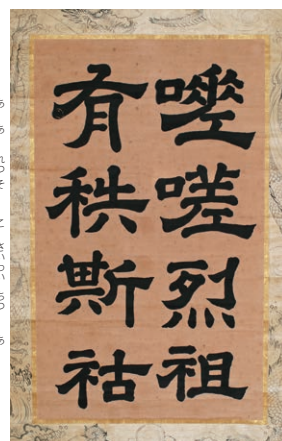 嗟嗟烈祖
有秩斯祜